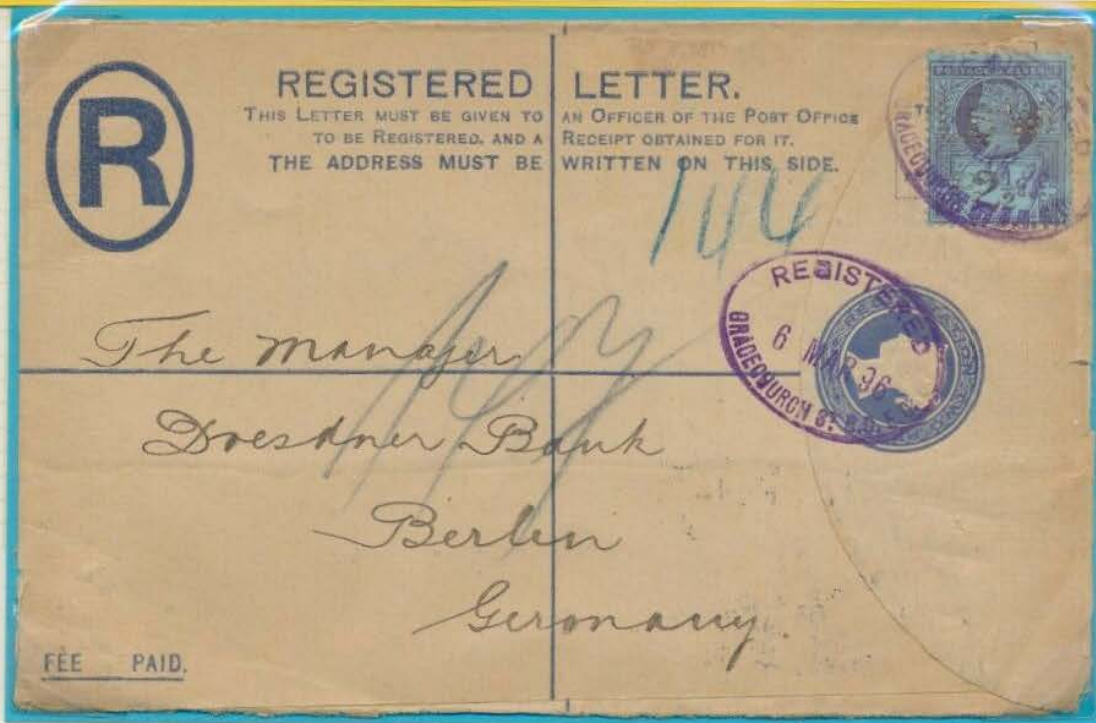 R
REGISTERED LETTER.
THIS LETTER MUST BE GIVEN TO AN OFFICER OF THE POST OFFICE
TO BE REGISTERED, AND A RECEIPT OBTAINED FOR IT.
THE ADDRESS MUST BE WRITTEN ON THIS SIDE.
144
REGISTERED
6 MAR 96
GRACECHURCH ST.
The Manager
Dresdner Bank
Berlin
Germany.
FEE PAID.